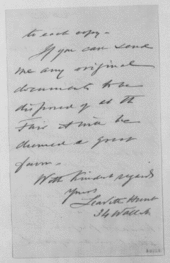 to each copy.
If you can send
me any original
documents to be
disposed of at the
Fair it will be
deemed a great
favor.
With kindest regards
Yours
34 Wall St